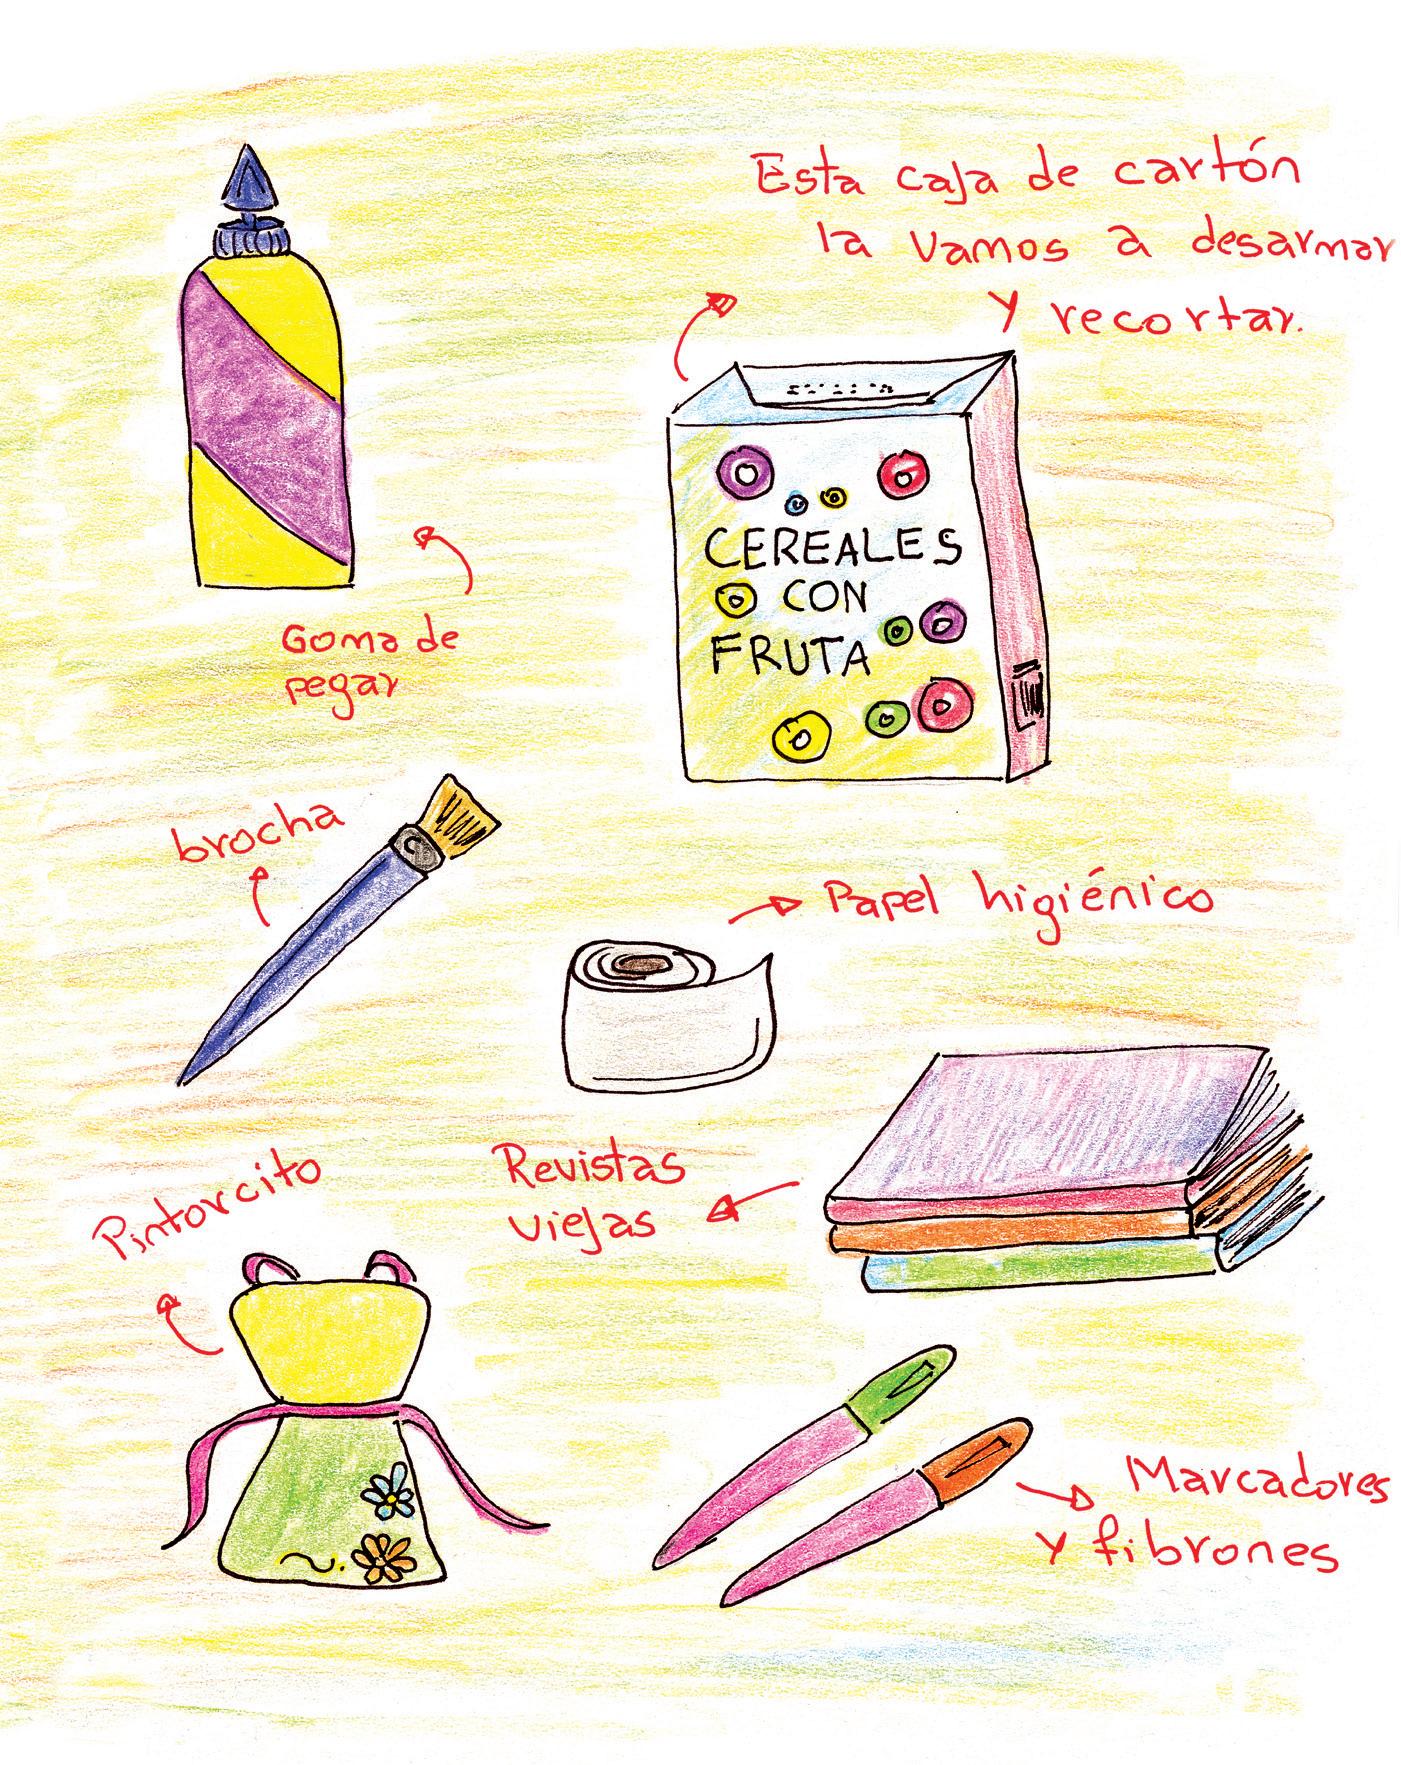 Esta caja de cartón
la vamos a desarmar
y recortar.
CEREALES
CON
FRUTA
Goma de
pegar
brocha
Papel higiénico
Revistas
viejas
Pintorcito
Marcadores
y fibrones